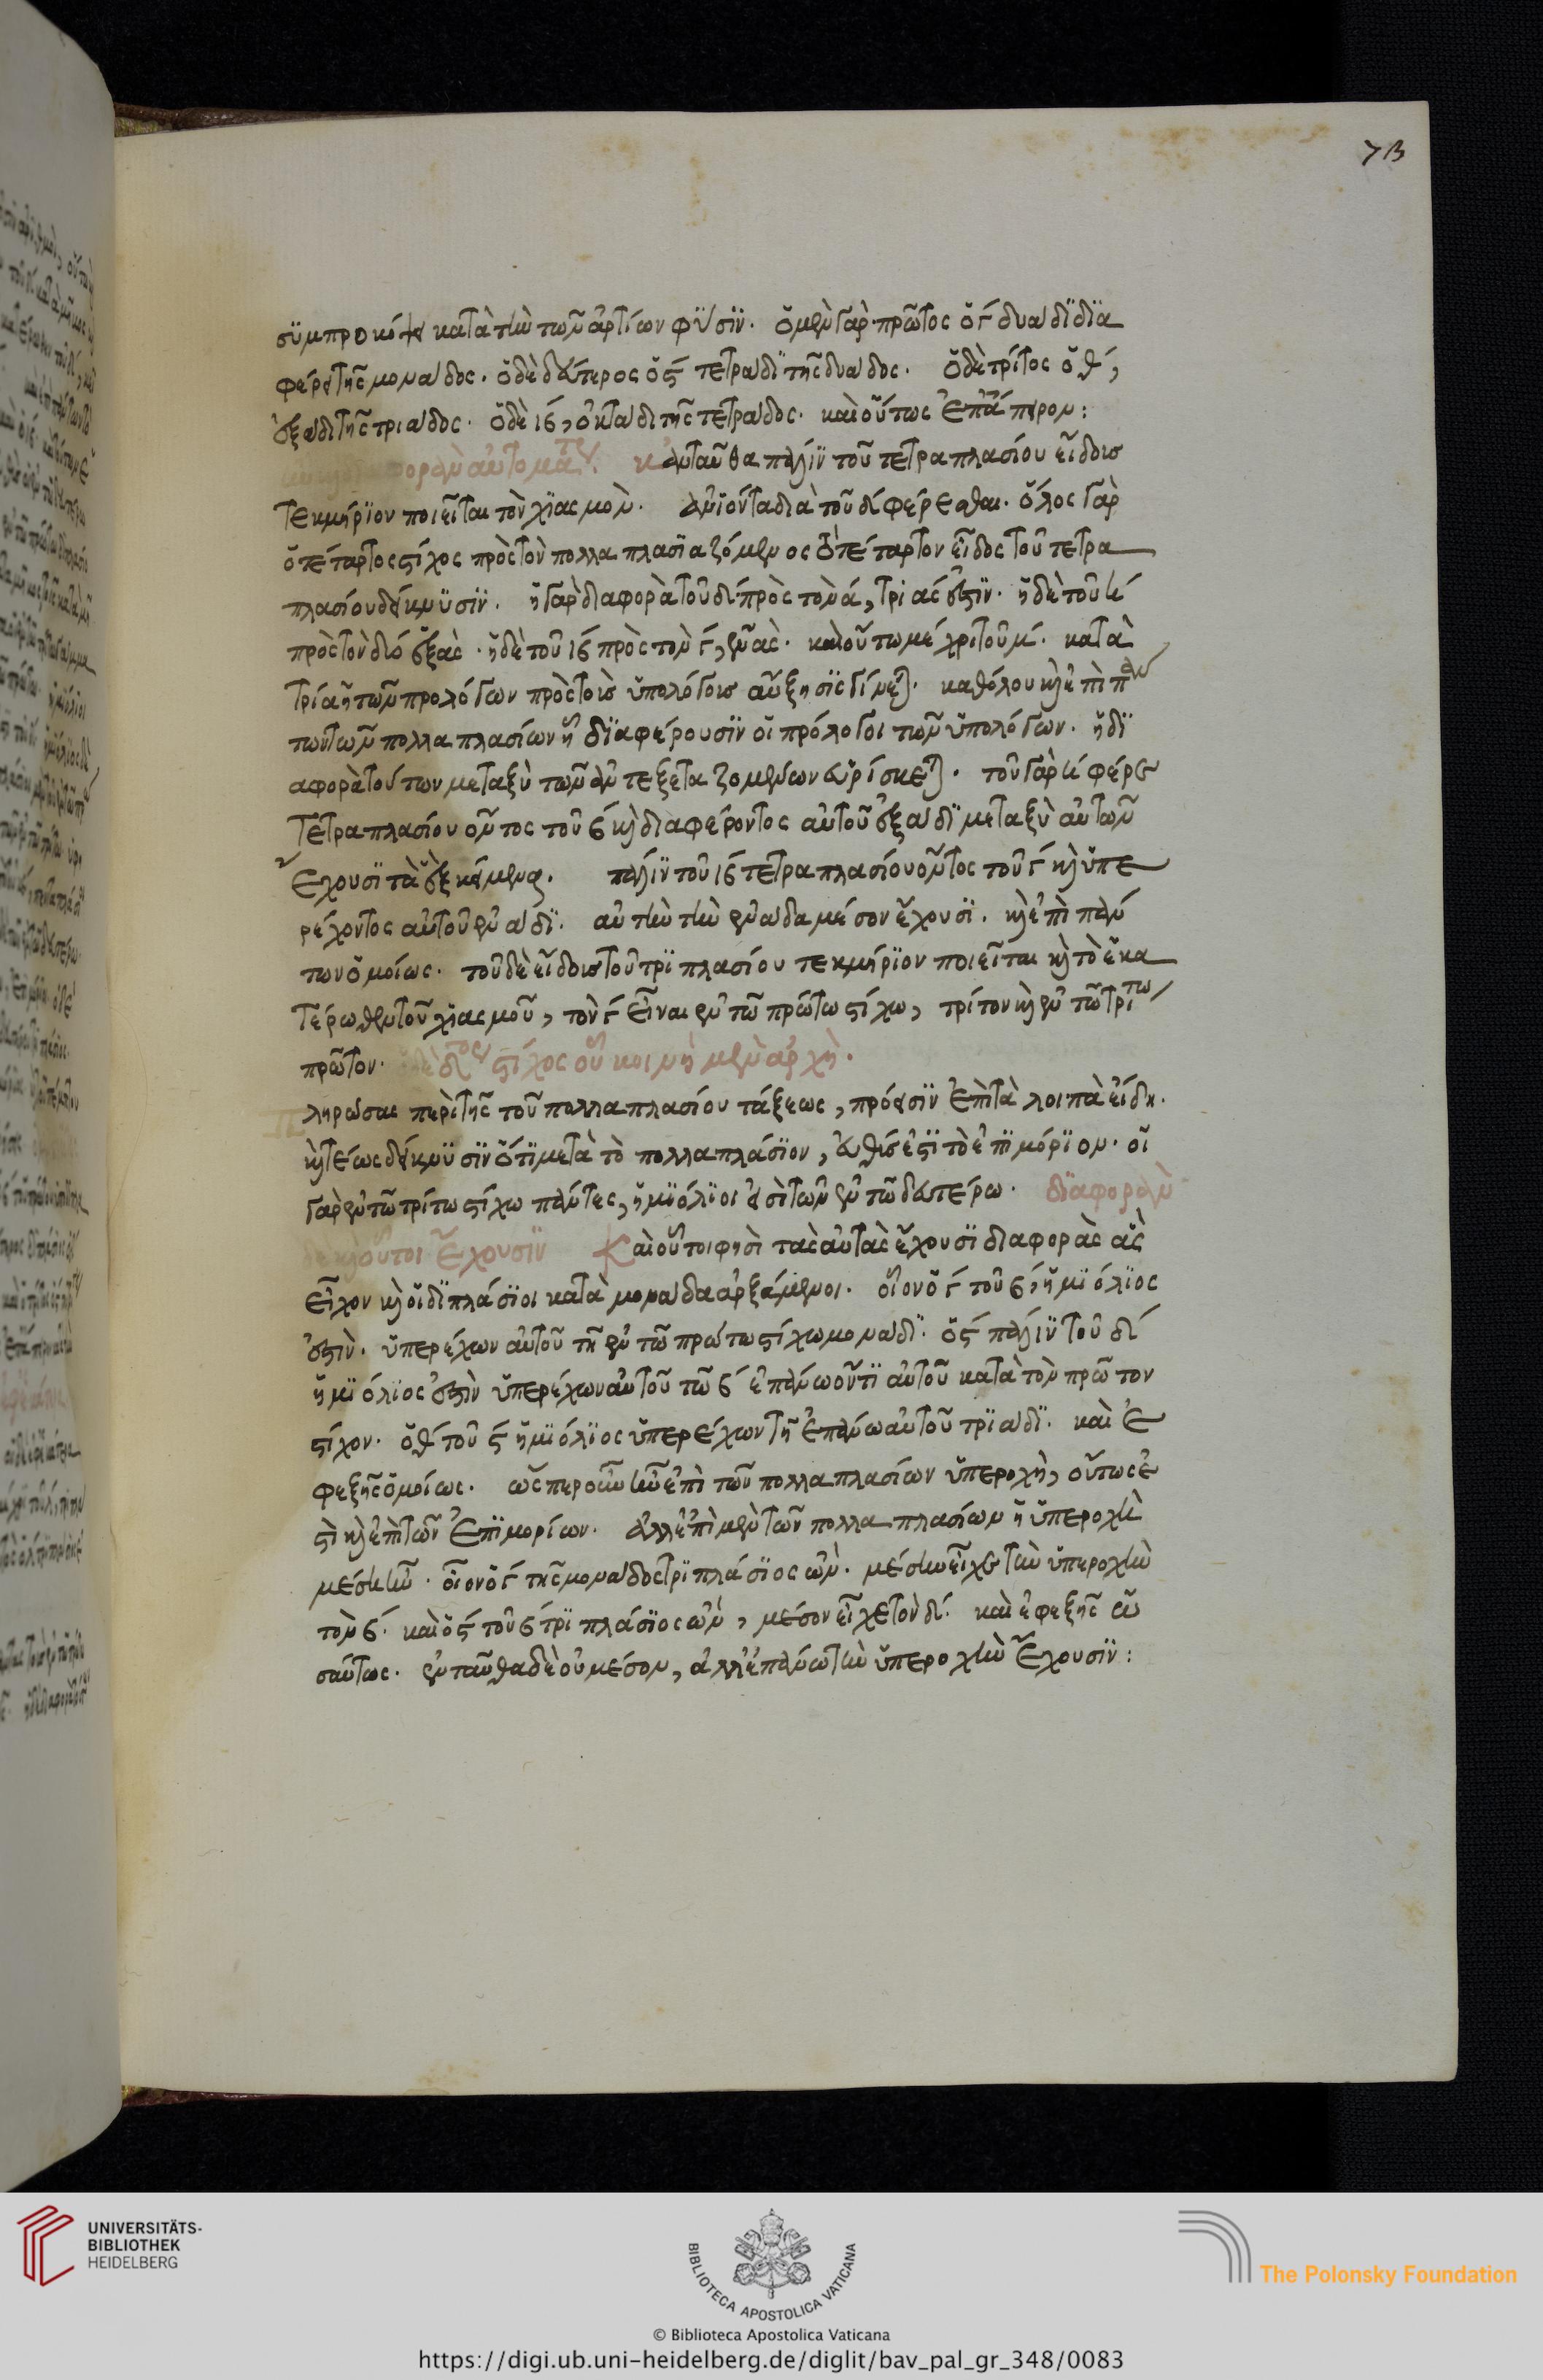 73
συμπροκόπτει κατὰ τὴν τῶν ἀρτίων φύσιν. ὁ μὲν γὰρ πρῶτος ὁ γ δυάδι δια
φέρει τῆς μονάδος. ὁ δὲ δεύτερος ὁ ς τετράδι τῆς δυάδος. ὁ δὲ τρίτος ὁ θ,
ἑξάδι τῆς τριάδος. ὁ δὲ ιβ, ὀκτάδι τῆς τετράδος. καὶ οὕτως ἐπ' ἄπειρον:
διαφορὰν αὐτομάτως. κἀνταῦθα πάλιν τοῦ τετραπλασίου εἴδους
τεκμήριον ποιεῖται τὸν χιασμὸν. ἀνιόντα διὰ τοῦ δ φέρεσθαι. ὅλος γὰρ
ὁ τέταρτος στίχος πρὸς τὸν πολλαπλασιαζόμενος τέταρτον εἶδος τοῦ τετρα
πλασίου δείκνυσιν. ἡ γὰρ διαφορὰ τοῦ δ πρὸς τὸν α, τριάς ἐστιν. ἡ δὲ τοῦ η
πρὸς τὸν δύο ἑξὰς. ἡ δὲ τοῦ ιβ πρὸς τὸν γ, ἐννεὰς. καὶ οὕτω μέχρι τοῦ μ. κατὰ
τρία ἡ τῶν προλόγων πρὸς τοὺς ὑπολόγους αὔξησις γίνεται. καθόλου καὶ ἐπὶ πάν
των τῶν πολλαπλασίων ἧ διαφέρουσιν οἱ πρόλογοι τῶν ὑπολόγων. ἡ δι
αφορὰ τούτων μεταξὺ τῶν ἀντεξεταζομένων εὑρίσκεται. τοῦ γὰρ η φέρε
τετραπλασίου ὄντος τοῦ β καὶ διαφέροντος αὐτοῦ ἑξάδι μεταξὺ αὐτῶν
ἔχουσι τὰ ἓξ κείμενα. πάλιν τοῦ ιβ τετραπλασίου ὄντος τοῦ γ καὶ ὑπε
ρέχοντος αὐτοῦ ἐννάδι. αὐτὴν τὴν ἐννάδα μέσον ἔχουσι. καὶ ἐπὶ πάν
των ὁμοίως. τοῦ δὲ εἴδους τοῦ τριπλασίου τεκμήριον ποιεῖται καὶ τὸ ἑκα
τέρωθεν τοῦ χιασμοῦ, τὸν γ εἶναι ἐν τῶ πρώτω στίχω, τρίτον καὶ ἐν τῶ τρίτω
πρῶτον. ὁ δὲ δος στίχος οὗ κοινὴ μὲν ἀρχὴ.
ληρώσας περὶ τῆς τοῦ πολλαπλασίου τάξεως, πρόεισιν ἐπὶ τὰ λοιπὰ εἴδη.
καὶ τέως δείκνυσιν ὅτι μετὰ τὸ πολλαπλάσιον, εὐθύς ἐστι τὸ ἐπιμόριον. οἱ
γὰρ ἐν τῶ τρίτω στίχω πάντες, ἡμιόλιοι εἰσὶ τῶν ἐν τῶ δευτέρω. διαφορὰν
δὲ καὶ οὗτοι ἔχουσιν Καὶ οὗτοι φησὶ τὰς αὐτὰς ἔχουσι διαφορὰς ἃς
εἶχον καὶ οἱ διπλάσιοι κατὰ μονάδα ἀρξάμενοι. οἷον ὁ γ τοῦ β, ἡμιόλιος
ἐστὶν. ὑπερέχων αὐτοῦ τῆ ἐν τῶ πρώτω στίχω μονάδι. ὁ ς πάλιν τοῦ δ
ἡμιόλιος ἐστὶν ὑπερέχων αὐτοῦ τῶ β ἐπάνω ὄντι αὐτοῦ κατὰ τὸν πρῶτον
στίχον. ὁ θ τοῦ ς ἡμιόλιος ὑπερέχων τῆ ἐπάνω αὐτοῦ τριάδι. καὶ ἐ
φεξῆς ὁμοίως. ὥσπερ οὖν ἦν ἐπὶ τῶν πολλαπλασίων ὑπεροχὴ, οὕτως ἐ
στὶ καὶ ἐπὶ τῶν ἐπιμορίων. ἀλλ' ἐπὶ μὲν τῶν πολλαπλασίων ἡ ὑπεροχὴ
μέση ἦν. οἷον ὁ γ τῆς μονάδος τριπλάσιος ὢν. μέσην εἶχε τὴν ὑπεροχὴν
τὸν β. καὶ ὁ ς τοῦ β τριπλάσιος ὢν, μέσον εἶχε τὸν δ. καὶ ἐφεξῆς ὡ
σαύτως. ἐνταῦθα δὲ οὐ μέσον, ἀλλ' ἐπάνω τὴν ὑπεροχὴν ἔχουσιν:
UNIVERSITÄTS-
BIBLIOTHEK
HEIDELBERG
BIBLIOTECA APOSTOLICA VATICANA
The Polonsky Foundation
© Biblioteca Apostolica Vaticana
https://digi.ub.uni-heidelberg.de/diglit/bav_pal_gr_348/0083